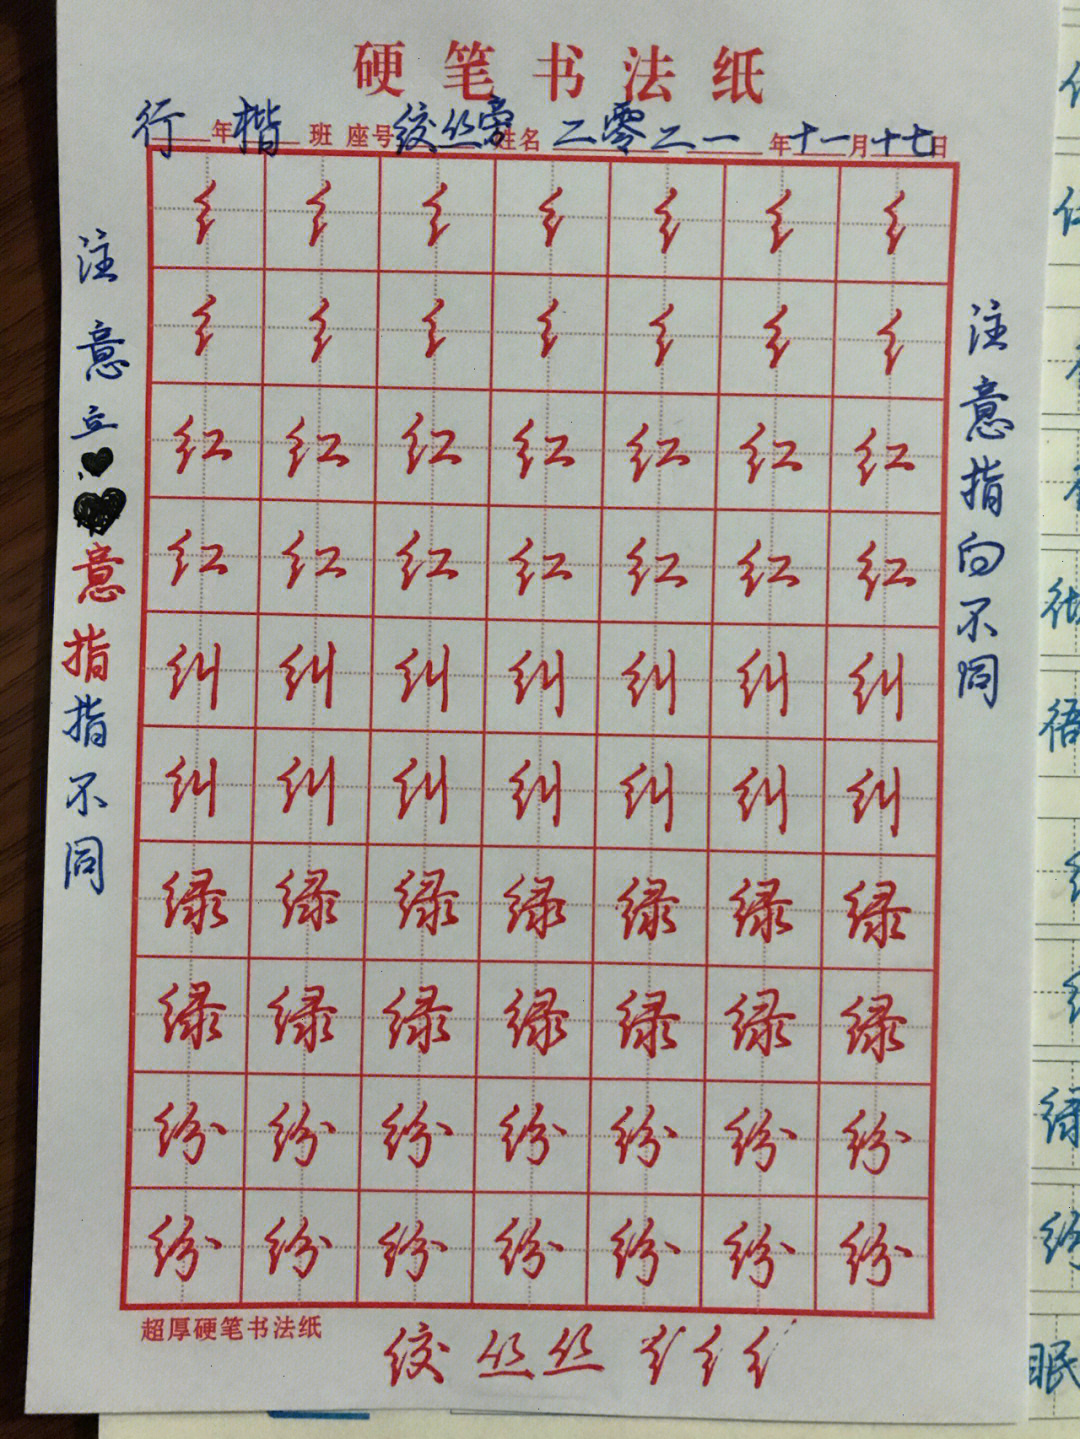 硬笔书法纸
行年楷班 座号绞丝旁姓名 二零二一年十一月十七日
纟纟纟纟纟纟纟
纟纟纟纟纟纟纟
红红红红红红红
红红红红红红红
纠纠纠纠纠纠纠
纠纠纠纠纠纠纠
绿绿绿绿绿绿绿
绿绿绿绿绿绿绿
纷纷纷纷纷纷纷
纷纷纷纷纷纷纷
超厚硬笔书法纸
绞丝丝 纟纟纟
注意立
意指指不同
注意指向不同
眠